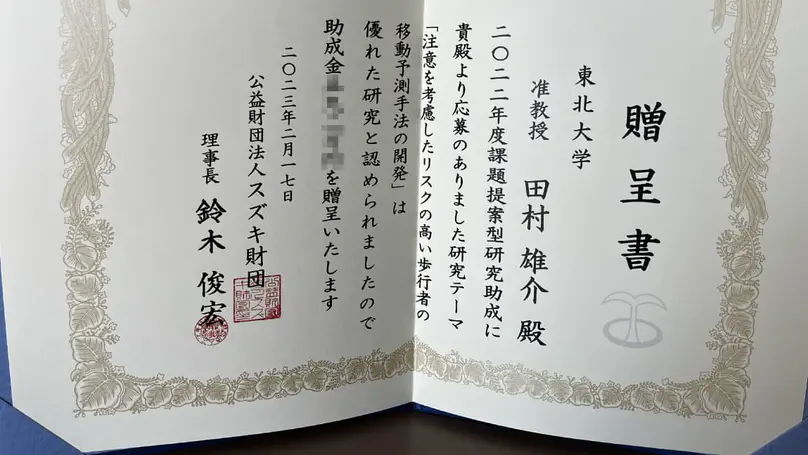 贈呈書
東北大学
准教授 田村 雄介 殿
二〇二二年度課題提案型研究助成に
貴殿より応募のありました研究テーマ
「注意を考慮したリスクの高い歩行者の
移動予測手法の開発」は
優れた研究と認められましたので
助成金 を贈呈いたします
二〇二三年二月一七日
公益財団法人スズキ財団
理事長 鈴木 俊宏